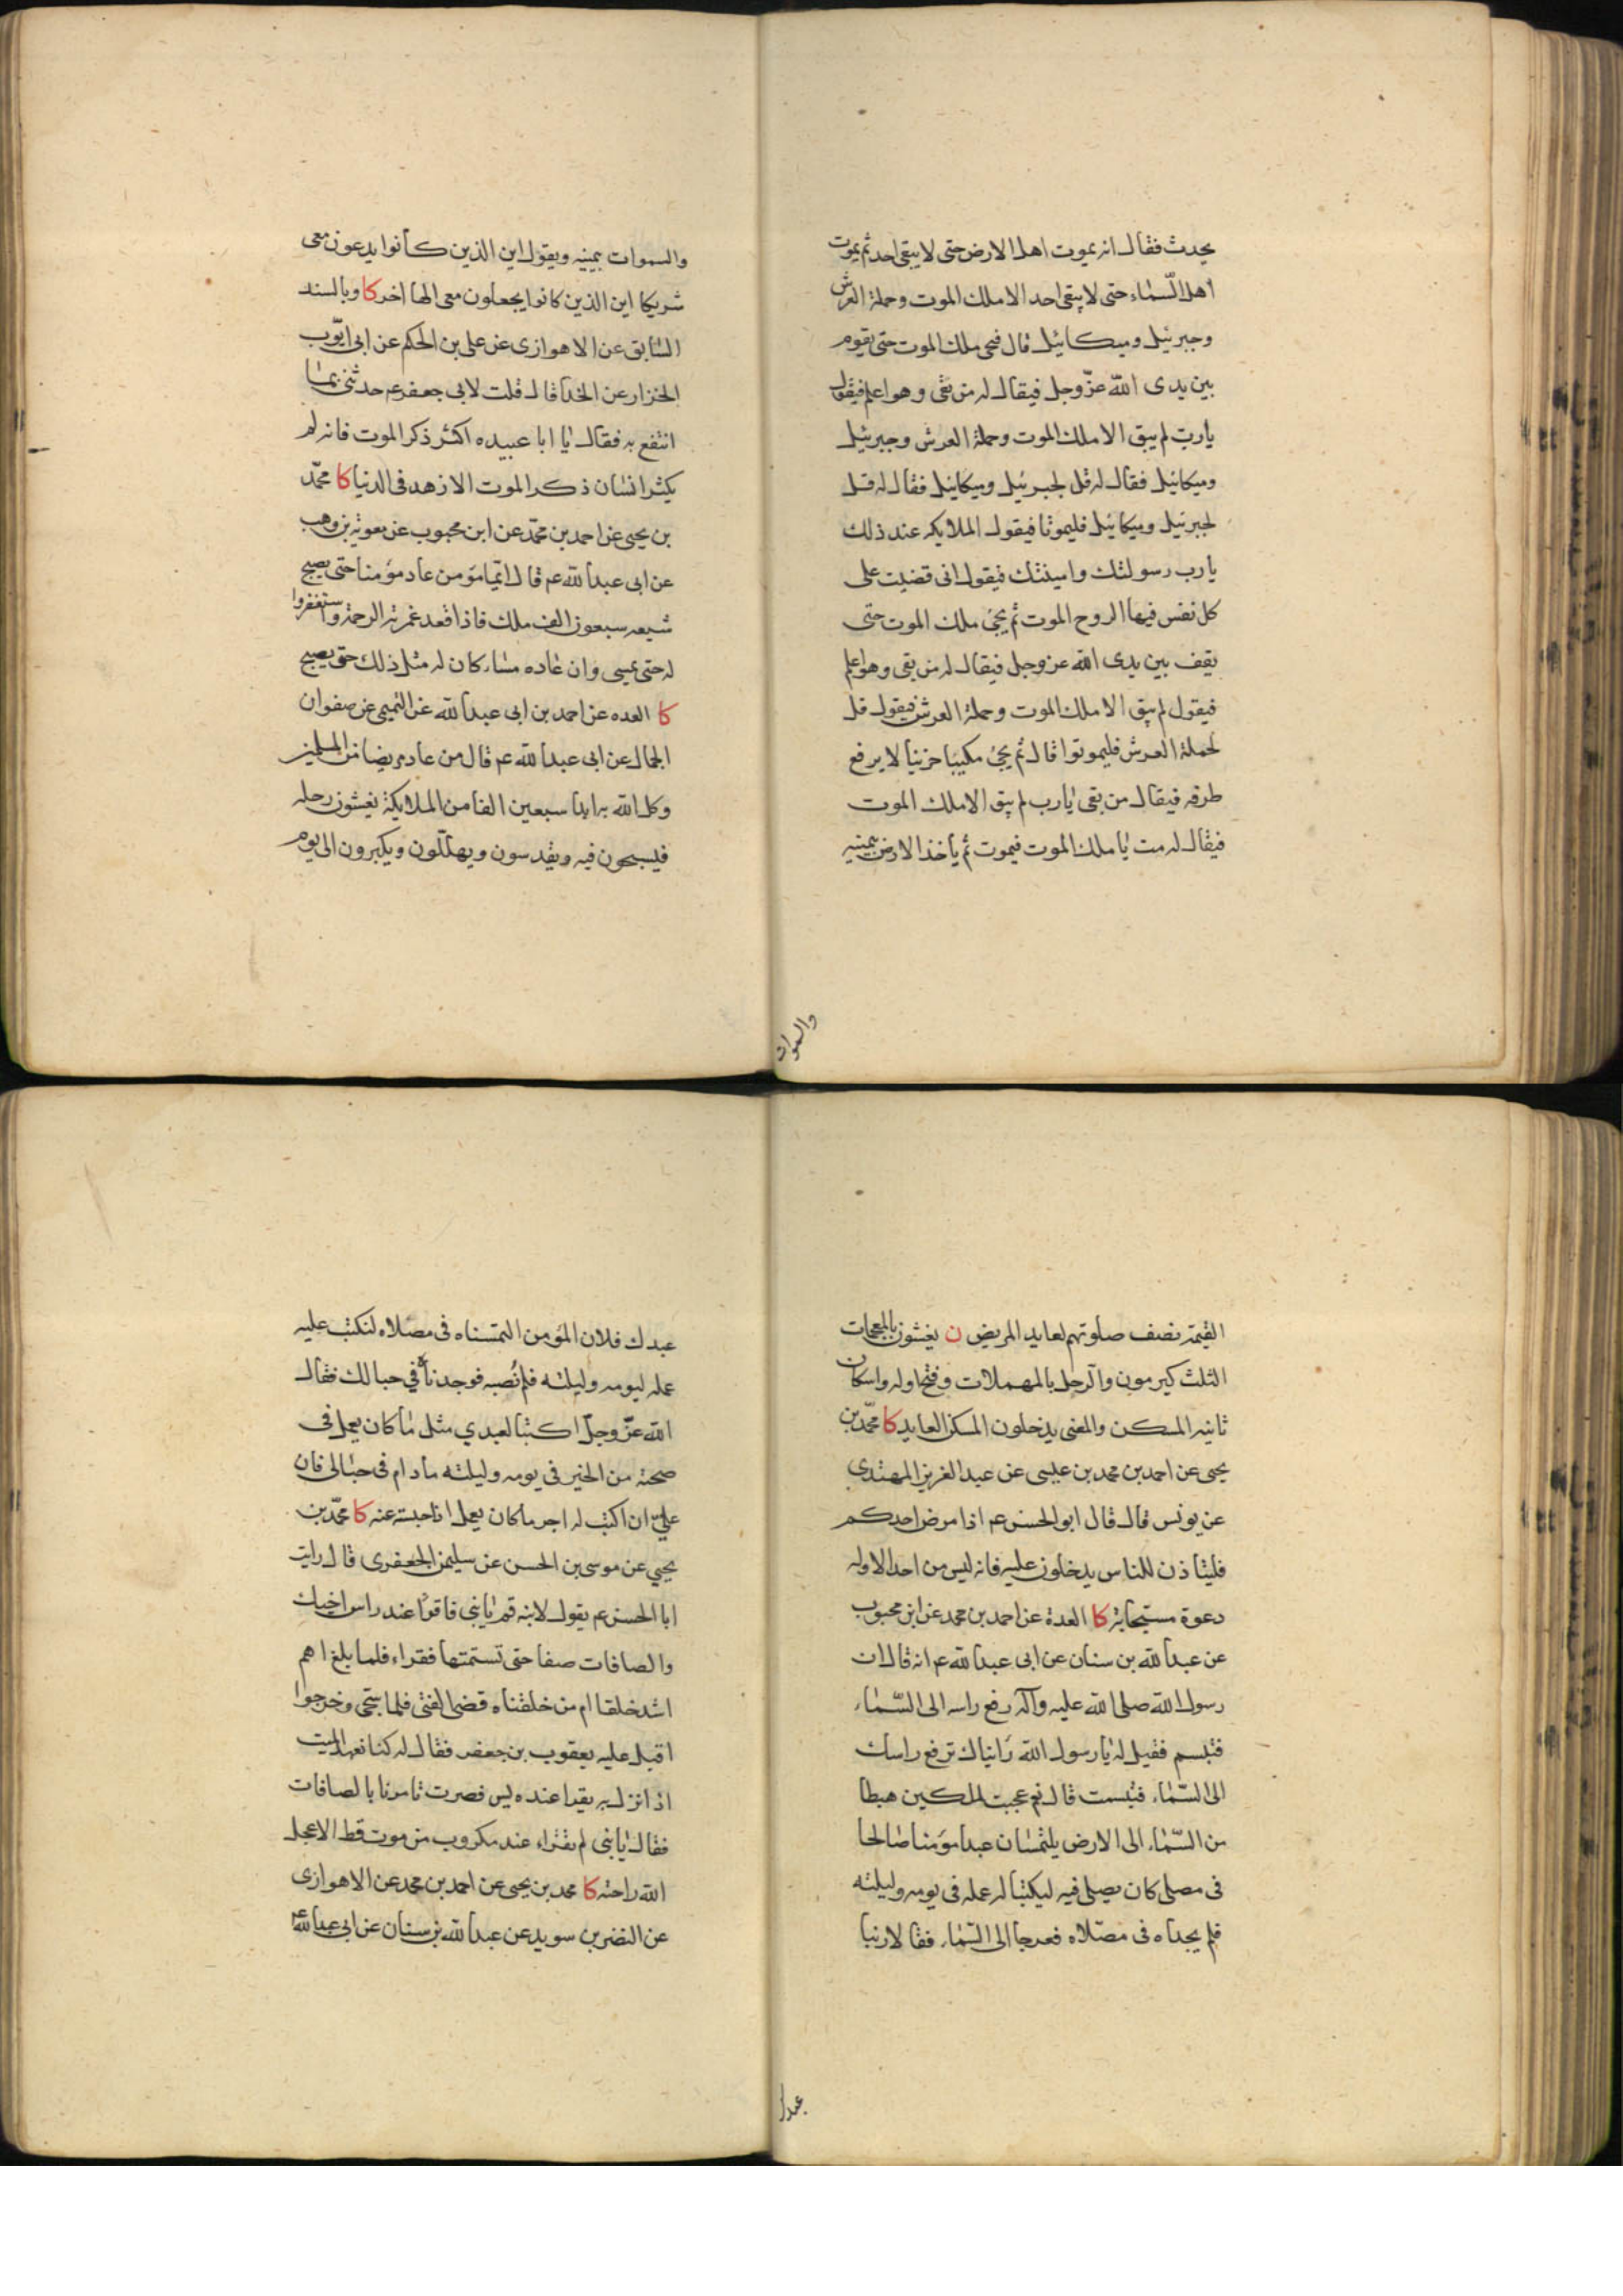 يحدث فقال انه يموت اهل الارض حتى لا يبقى احد ثم يموت
اهل السّماء حتى لا يبقى احد الا ملك الموت وحملة العرش
وجبرئيل وميكائيل قال فيجى ملك الموت حتى يقوم
بين يدى الله عزّ وجل فيقال له من بقى وهو اعلم فيقول
يا رب لم يبق الا ملك الموت وحملة العرش وجبرئيل
وميكائيل فقال له قل لجبرئيل وميكائيل فقال له قل
لجبرئيل وميكائيل فليموتا فيقول الملايكه عند ذلك
يا رب رسوليك وامينيك فيقول انى قضيت على
كل نفس فيها الروح الموت ثم يجئ ملك الموت حتى
يقف بين يدى الله عز وجل فيقال له من بقى وهو اعلم
فيقول لم يبق الا ملك الموت وحملة العرش فيقول قل
لحملة العرش فليموتوا قال ثم يجئ مكيبا حزينا لا يرفع
طرفه فيقال من بقى يا رب لم يبق الا ملك الموت
فيقال له مت يا ملك الموت فيموت ثم ياخذ الارض بيمينه
والسموات
والسموات بيمينه ويقول اين الذين كانوا يدعون معى
شريكا اين الذين كانوا يجعلون معى الها اخر كا وبالسند
السابق عن الاهوازى عن على بن الحكم عن ابى ايّوب
الخزاز عن الحذا قال قلت لابى جعفر عم حدثنى بما
انتفع به فقال يا ابا عبيده اكثر ذكر الموت فانه لم
يكثر انسان ذكر الموت الا زهد فى الدنيا كا محمّد
بن يحيى عن احمد بن محمّد عن ابن محبوب عن معوية بن وهب
عن ابى عبد الله عم قال ايما مؤمن عاد مؤمنا حتى يصبح
شيعه سبعون الف ملك فاذا قعد غمرته الرحمة واستغفروا
له حتى يمسى وان عاده مساء كان له مثل ذلك حتى يصبح
كا العده عن احمد بن ابى عبد الله عن التميمى عن صفوان
الجمال عن ابى عبد الله عم قال من عاد مريضا من المسلمين
وكل الله به ابدا سبعين الفا من الملايكة يغشون رحله
فيسبحون فيه ويقدسون ويهللّون ويكبرون الى يوم
القيمة نصف صلوتهم لعايد المريض ن يغشون بالمعجمات
الثلث كيرمون والرحل بالمهملات وفتح اوله واسكان
ثانيه المسكن والمعنى يدخلون المسكن العايد كا محمّد بن
يحيى عن احمد بن محمد بن عيسى عن عبد العزيز المهتدى
عن يونس قال قال ابو الحسن عم اذا مرض احدكم
فلياذن للناس يدخلون عليه فانه ليس من احد الا وله
دعوة مستجابة كا العدة عن احمد بن محمد عن ابن محبوب
عن عبد الله بن سنان عن ابى عبد الله عم انه قال ان
رسول الله صلى الله عليه وآله رفع راسه الى السّماء
فتبسم فقيل له يا رسول الله رايناك ترفع راسك
الى السّماء فتبسمت قال نعم عجبت لملكين هبطا
من السّماء الى الارض يلتمسان عبدا مؤمنا صالحا
فى مصلى كان يصلى فيه ليكتبا له عمله فى يومه وليلته
فلم يجداه فى مصلاه فعرجا الى السّماء فقالا ربنا
عبدك
عبدك فلان المؤمن التمسناه فى مصلاه لنكتب عليه
عمله ليومه وليلته فلم نُصبه فوجدناه فى حبالك فقال
الله عزّ وجلّ اكتبا لعبدي مثل ما كان يعمل فى
صحته من الخير فى يومه وليلته ما دام فى حبالى فان
علىّ ان اكتب له اجر ما كان يعمل اذا حبسته عنه كا محمّد بن
يحيي عن موسى بن الحسن عن سليمن الجعفرى قال رايت
ابا الحسن عم يقول لابنه قم يا بنى فاقرا عند راس اخيك
والصافات صفا حتى تستمتها فقراء فلما بلغ اهم
اشد خلقا ام من خلقناه قضى الفتى فلما سجى وخرجوا
اقبل عليه يعقوب بن جعفر فقال له كنا نعهد الميت
اذا نزل به يقرا عنده يس فصرت تامرنا بالصافات
فقال يا بنى لم يقراء عند مكروب من موت قط الا عجل
الله راحته كا محمد بن يحيى عن احمد بن محمد عن الاهوازى
عن النضر بن سويد عن عبد الله بن سنان عن ابى عبد الله عم